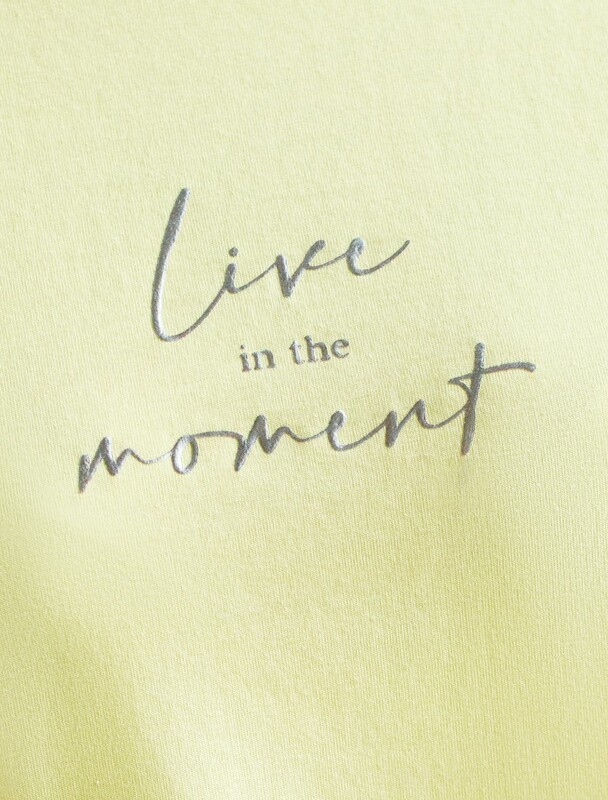 live
in the
moment